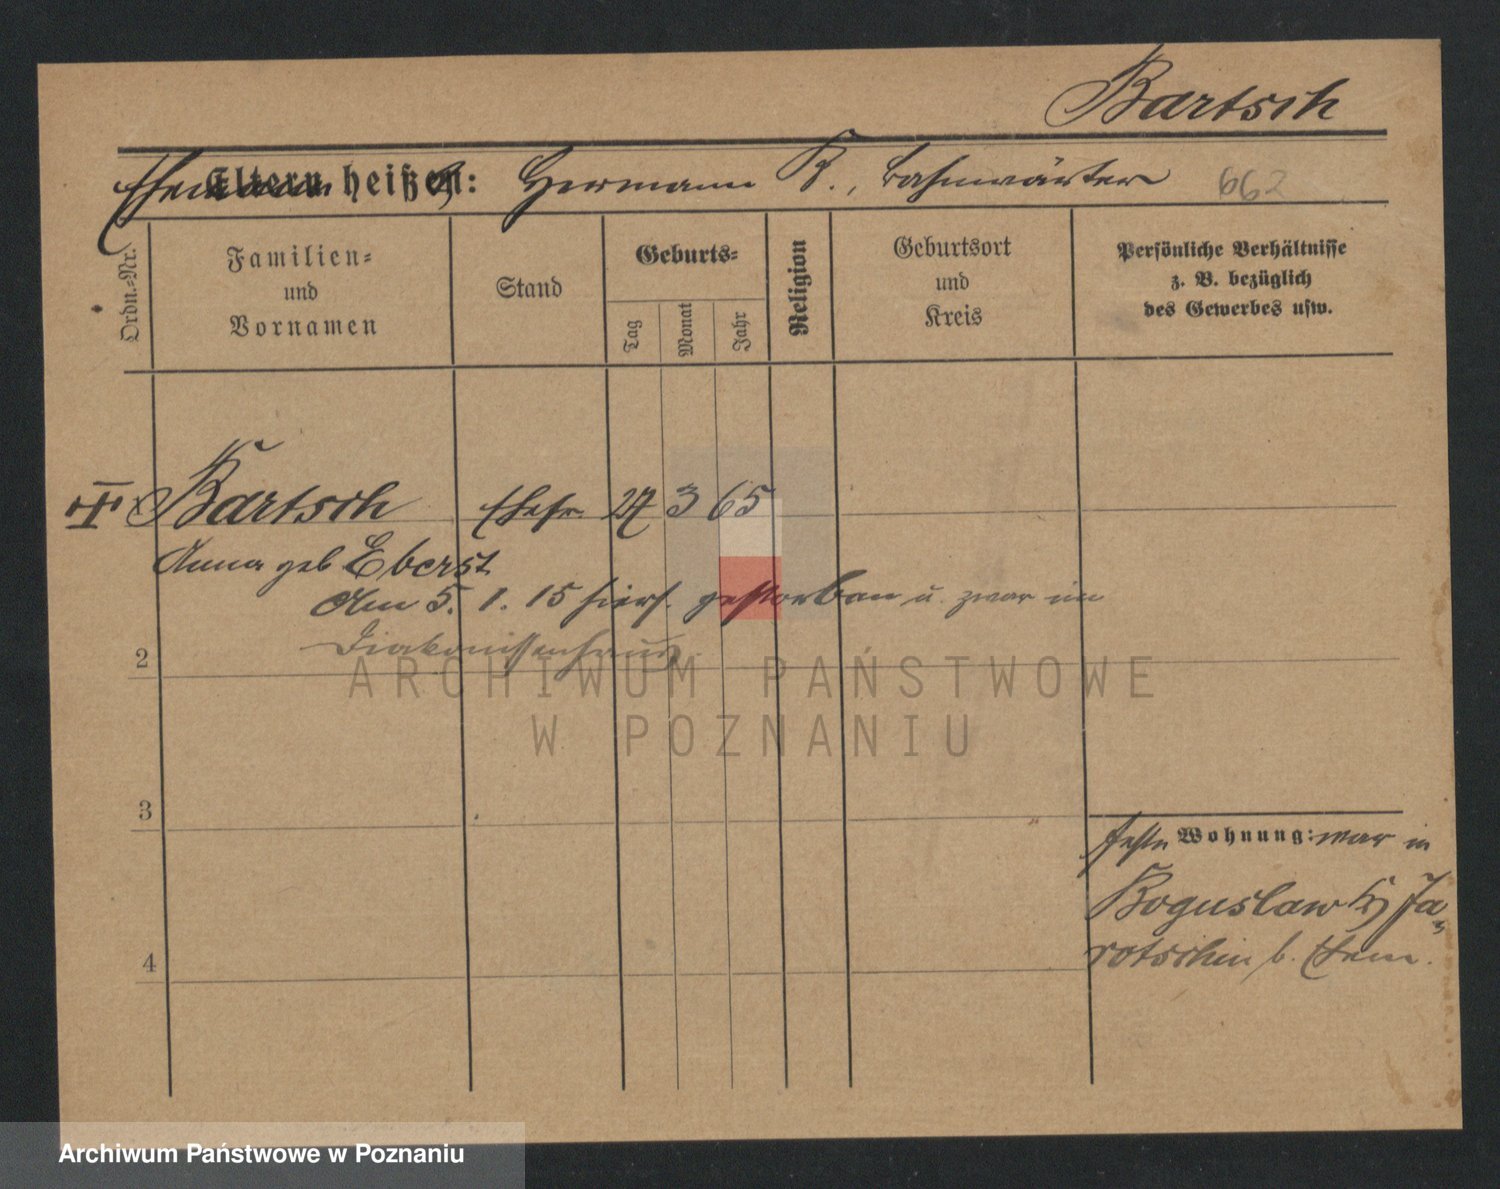 Bartsch
Ehemann heißt: Hermann B., Bahnwärter 662
Ordn.-Nr.
Familien-
und
Vornamen
Stand
Geburts-
Tag
Monat
Jahr
Religion
Geburtsort
und
Kreis
Persönliche Verhältnisse
z. B. bezüglich
des Gewerbes usw.
Bartsch Ehefr. 27 3 65
Anna geb Eberst
Am 5. 1. 15 hiers. gestorben u. zwar im
Diakonissenhaus.
2
3
4
feste Wohnung: war in
Boguslaw Kr Ja-
rotschin b. Ehem.
ARCHIWUM PAŃSTWOWE
W POZNANIU
Archiwum Państwowe w Poznaniu